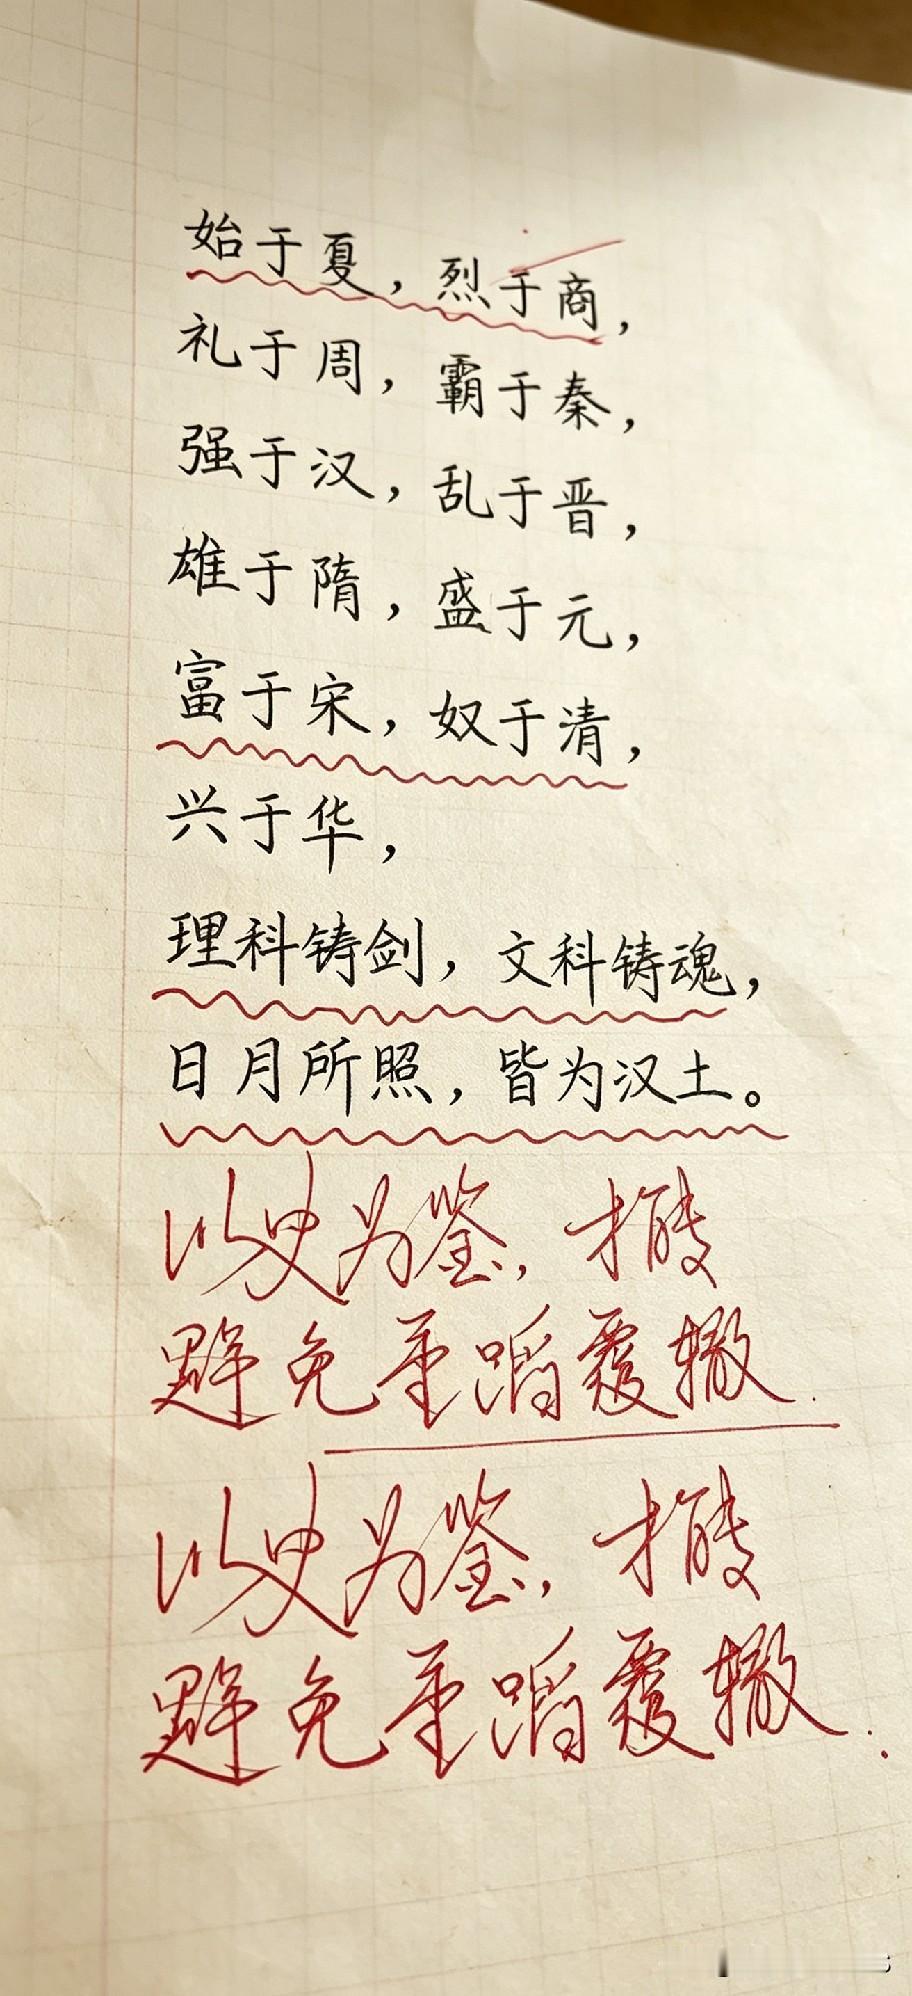 始于夏，烈于商，
礼于周，霸于秦，
强于汉，乱于晋，
雄于隋，盛于元，
富于宋，奴于清，
兴于华，
理科铸剑，文科铸魂，
日月所照，皆为汉土。
以史为鉴，才能
避免重蹈覆辙.
以史为鉴，才能
避免重蹈覆辙.